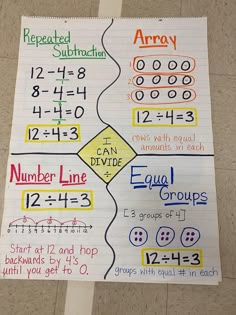 Repeated
Subtraction
12-4=8
8-4=4
4-4=0
12÷4=3
Array
1
2
3
12÷4=3
rows with equal
amounts in each
I
CAN
DIVIDE
÷
Number Line
12÷4=3
0 1 2 3 4 5 6 7 8 9 10 11 12
Start at 12 and hop
backwards by 4's
until you get to 0.
Equal
Groups
[3 groups of 4]
12÷4=3
groups with equal # in each